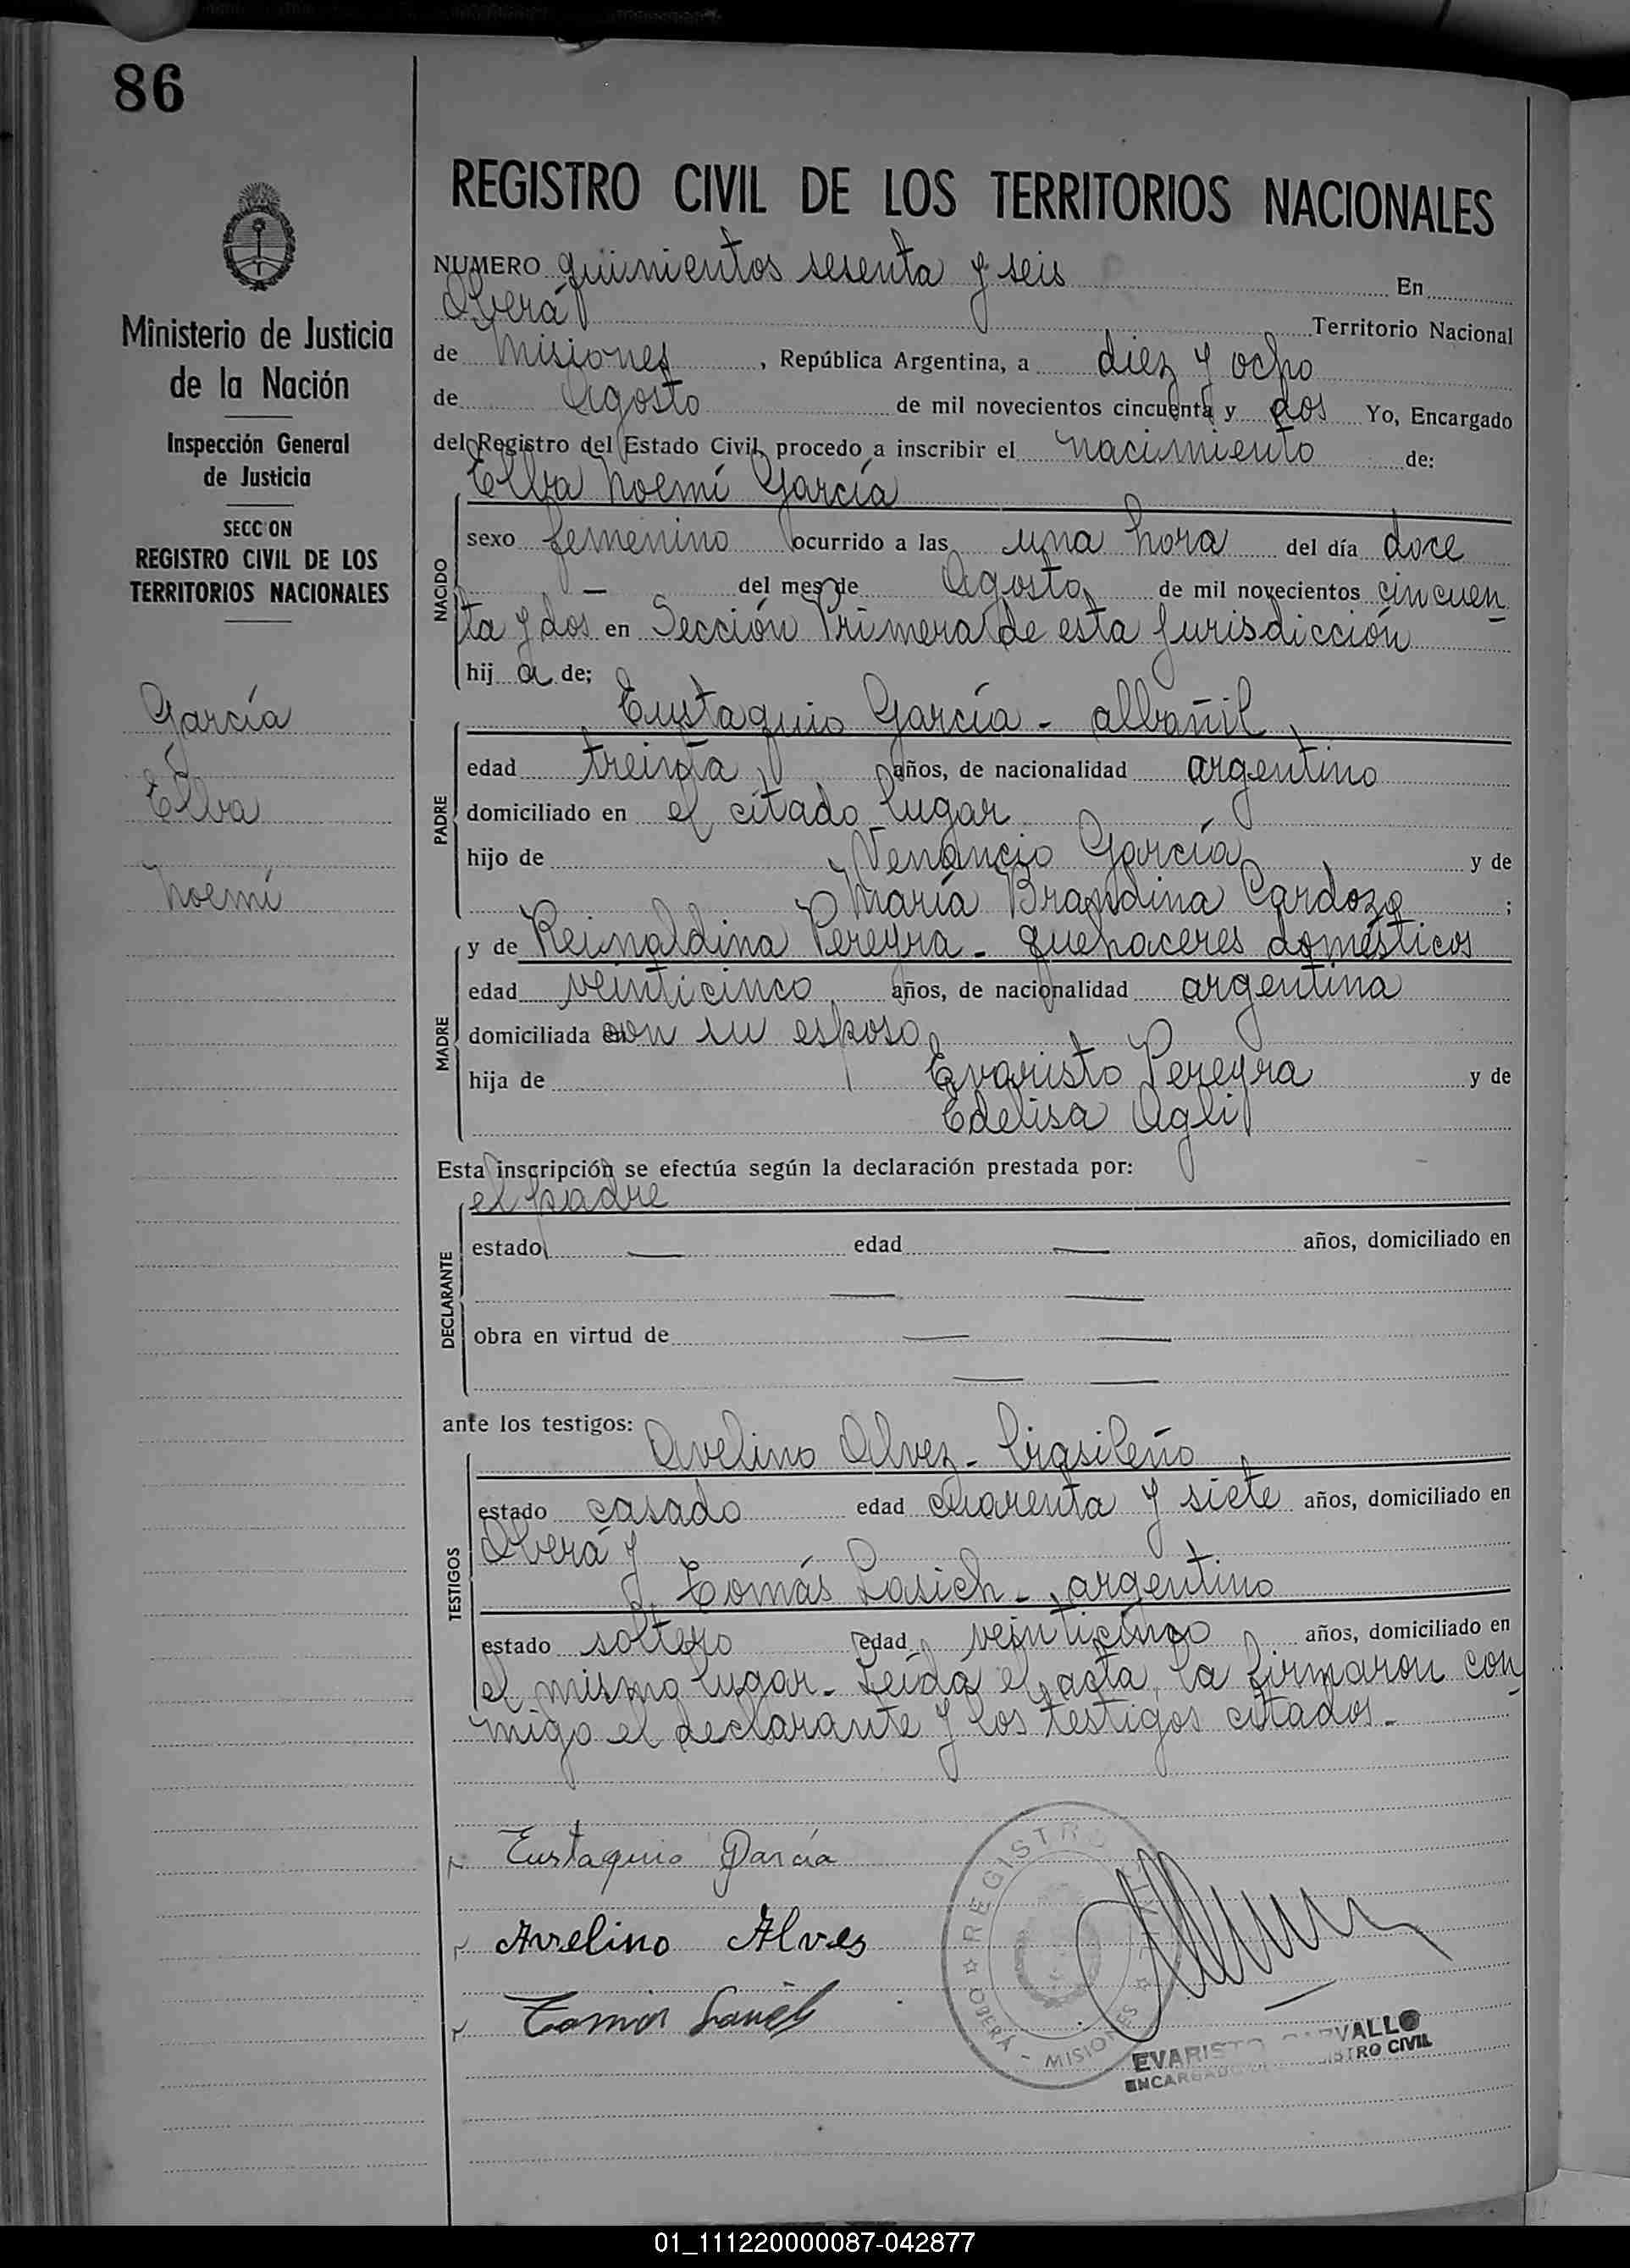 86
REGISTRO CIVIL DE LOS TERRITORIOS NACIONALES
Ministerio de Justicia
de la Nación
Inspección General
de Justicia
SECC ON
REGISTRO CIVIL DE LOS
TERRITORIOS NACIONALES
García
Elba
Noemí
NUMERO quinientos sesenta y seis En
Oberá Territorio Nacional
de Misiones, República Argentina, a diez y ocho
de Agosto de mil novecientos cincuenta y dos Yo, Encargado
del Registro del Estado Civil, procedo a inscribir el nacimiento de:
Elba Noemí García
NACIDO
sexo femenino ocurrido a las una hora del día doce
— del mes de Agosto de mil novecientos cincuen-
ta y dos en Sección Primera de esta jurisdicción
hij a de;
PADRE
Eustaquio García - albañil
edad treinta años, de nacionalidad argentino
domiciliado en el citado lugar
hijo de Venancio García y de
María Brandina Cardozo ;
MADRE
y de Reinaldina Pereyra - quehaceres domésticos
edad veinticinco años, de nacionalidad argentina
domiciliada en con su esposo
hija de Evaristo Pereyra y de
Edelisa Agli
Esta inscripción se efectúa según la declaración prestada por:
el padre
DECLARANTE
estado — edad — años, domiciliado en
— —
obra en virtud de — —
— —
ante los testigos:
TESTIGOS
Avelino Alvez - brasileño
estado casado edad cuarenta y siete años, domiciliado en
Oberá y
Tomás Lasich - argentino
estado soltero edad veinticinco años, domiciliado en
el mismo lugar. Leída el acta, la firmaron con-
migo el declarante y los testigos citados.-
Eustaquio García
Avelino Alves
REGISTRO
OBERÁ - MISIONES
EVARISTO CARVALLO
ENCARGADO DEL REGISTRO CIVIL
01_111220000087-042877